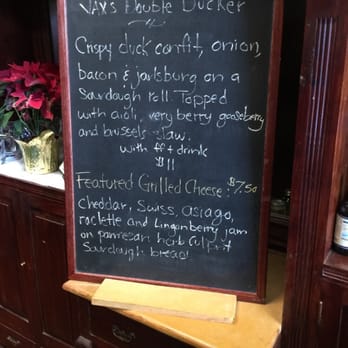 Vax's Double Ducker
Crispy duck confit, onion,
bacon & jarlsburg on a
Sourdough roll. Topped
with aioli, very berry gooseberry
and brussels slaw.
with ff + drink
$11
Featured Grilled Cheese: $7.50
Cheddar, Swiss, asiago,
raclette and lingonberry jam
on parmesan herb
Sourdough bread!